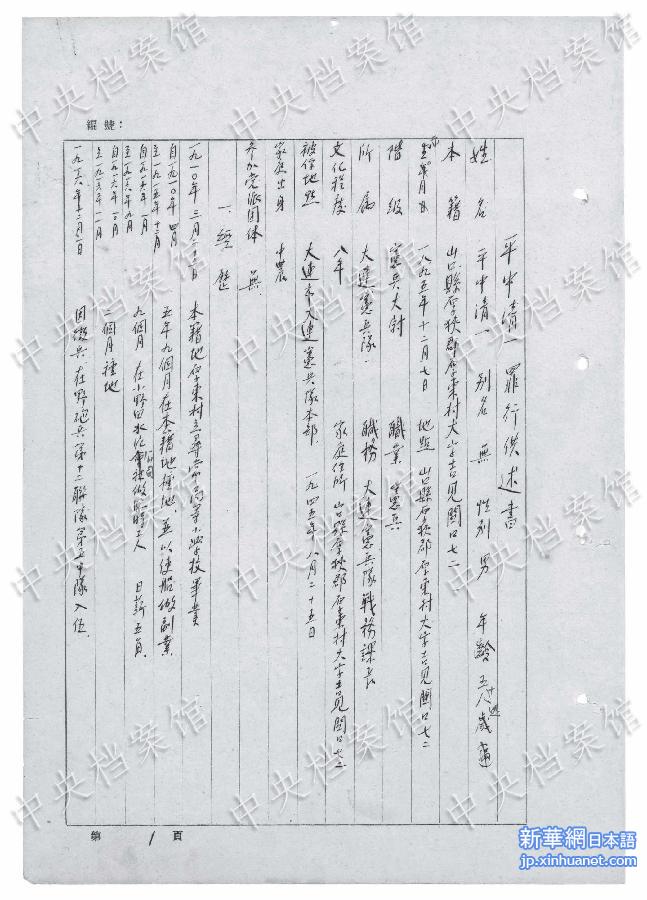 編號：
平中清一 罪行供述書
姓名 平中清一 別名 無 性別 男 年齡 五十八歲
本籍 山口縣厚狹郡厚東村大字吉見関口七二
一八九五年十二月七日 地點 山口縣厚狹郡厚東村大字吉見関口七二
階級 憲兵大尉 職業 憲兵
所属 大連憲兵隊 職務 大連憲兵隊戰務課長
文化程度 八年 家庭住所 山口縣厚狹郡厚東村大字吉見関口七二
被俘地點 大連市大連憲兵隊本部 一九四五年八月二十五日
家庭出身 中農
参加党派団体 無
一、經歷
一九一〇年三月二十日 本籍地厚東村立尋常高等小学校畢業
自一九一〇年四月
至一九一五年十二月 五年九個月在本籍地種地，並以使船做副業
自一九一六年一月
至一九一六年九月 九個月 在小野田 工人 日薪五角
自一九一六年十月
至一九一六年十一月 二個月種地
一九一六年十二月一日 因徵兵在野砲兵第十二聯隊第五中隊入伍
第 1 頁
中央档案馆
中央档案馆
中央档案馆
中央档案馆
中央档案馆
中央档案馆
中央档案馆
中央档案馆
新華網日本語
jp.xinhuanet.com